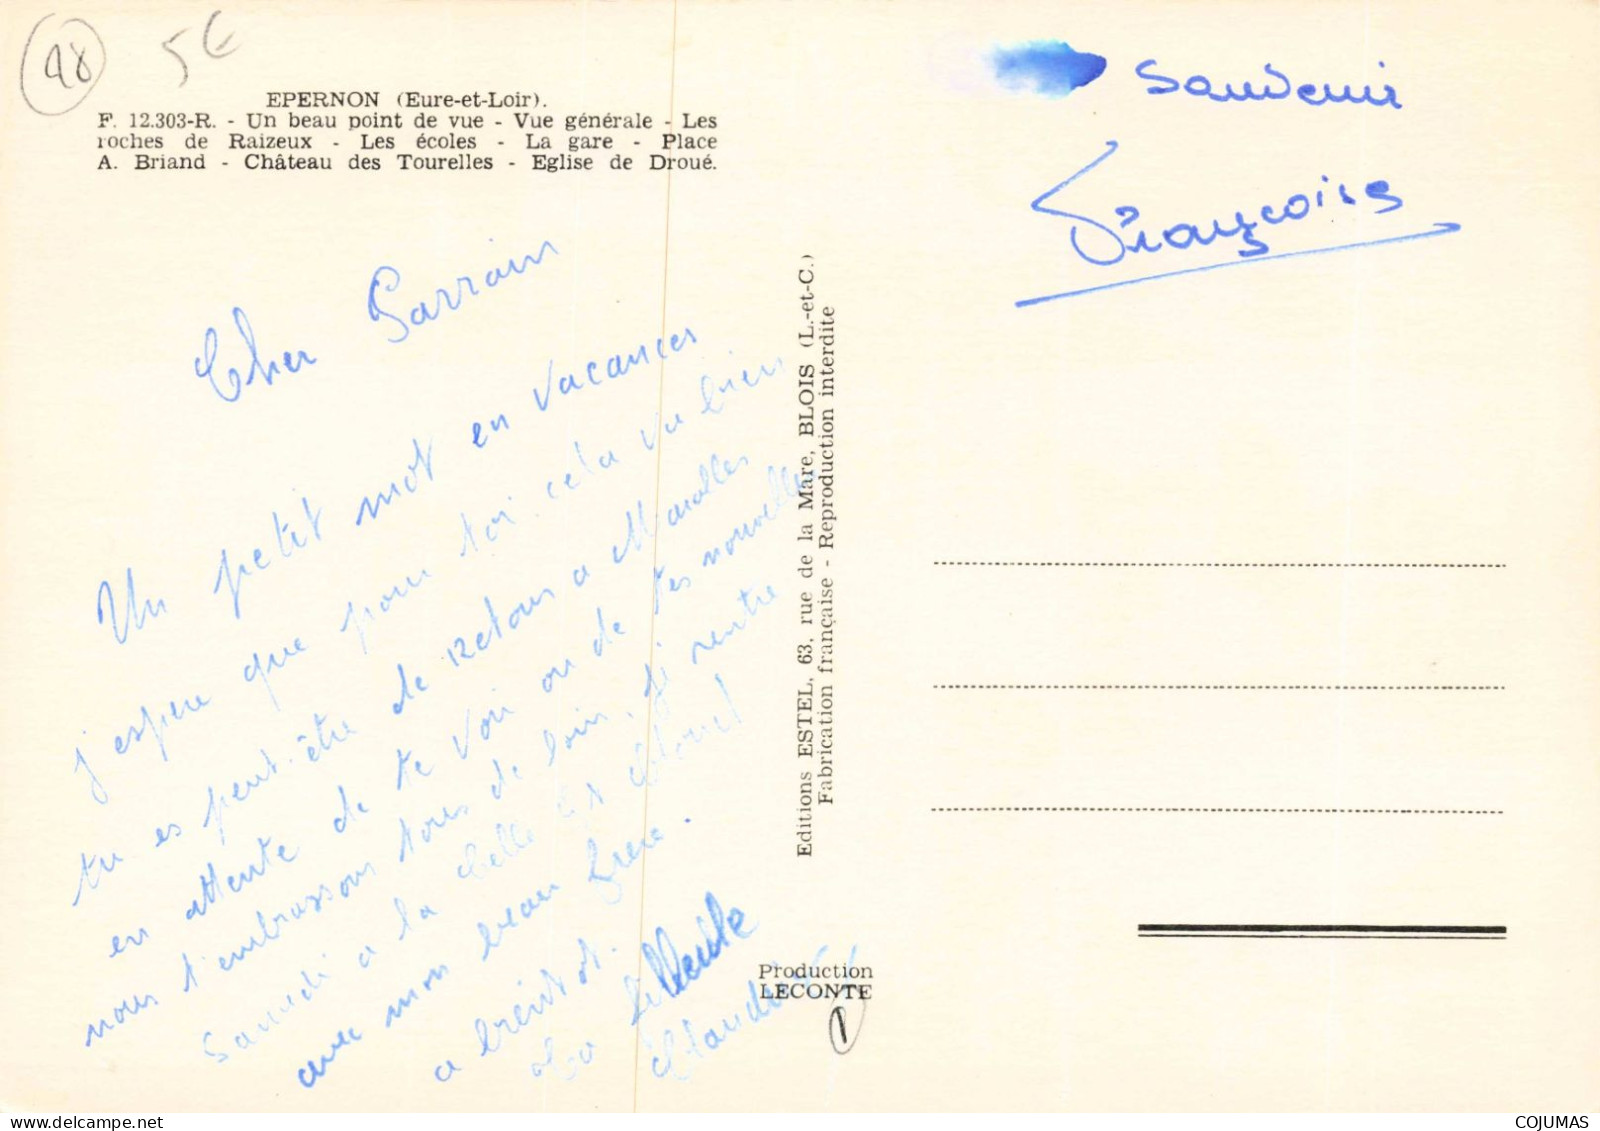 28 5€
EPERNON (Eure-et-Loir).
F. 12.303-R. - Un beau point de vue - Vue générale - Les
roches de Raizeux - Les écoles - La gare - Place
A. Briand - Château des Tourelles - Eglise de Droué.
Cher Parrain
Un petit mot en vacances
j'espere que pour toi cela va bien
tu es peut-être de retour a
en attente de te voir ou de tes nouvelles
nous t'embrassons tous de loin. Je rentre
Samedi a la
avec mon beau frere.
a bientot.
Claudine
Editions ESTEL, 63, rue de la Mare, BLOIS (L.-et-C.)
Fabrication française - Reproduction interdite
Production
LECONTE
1
Souvenir
Françoise
COJUMAS